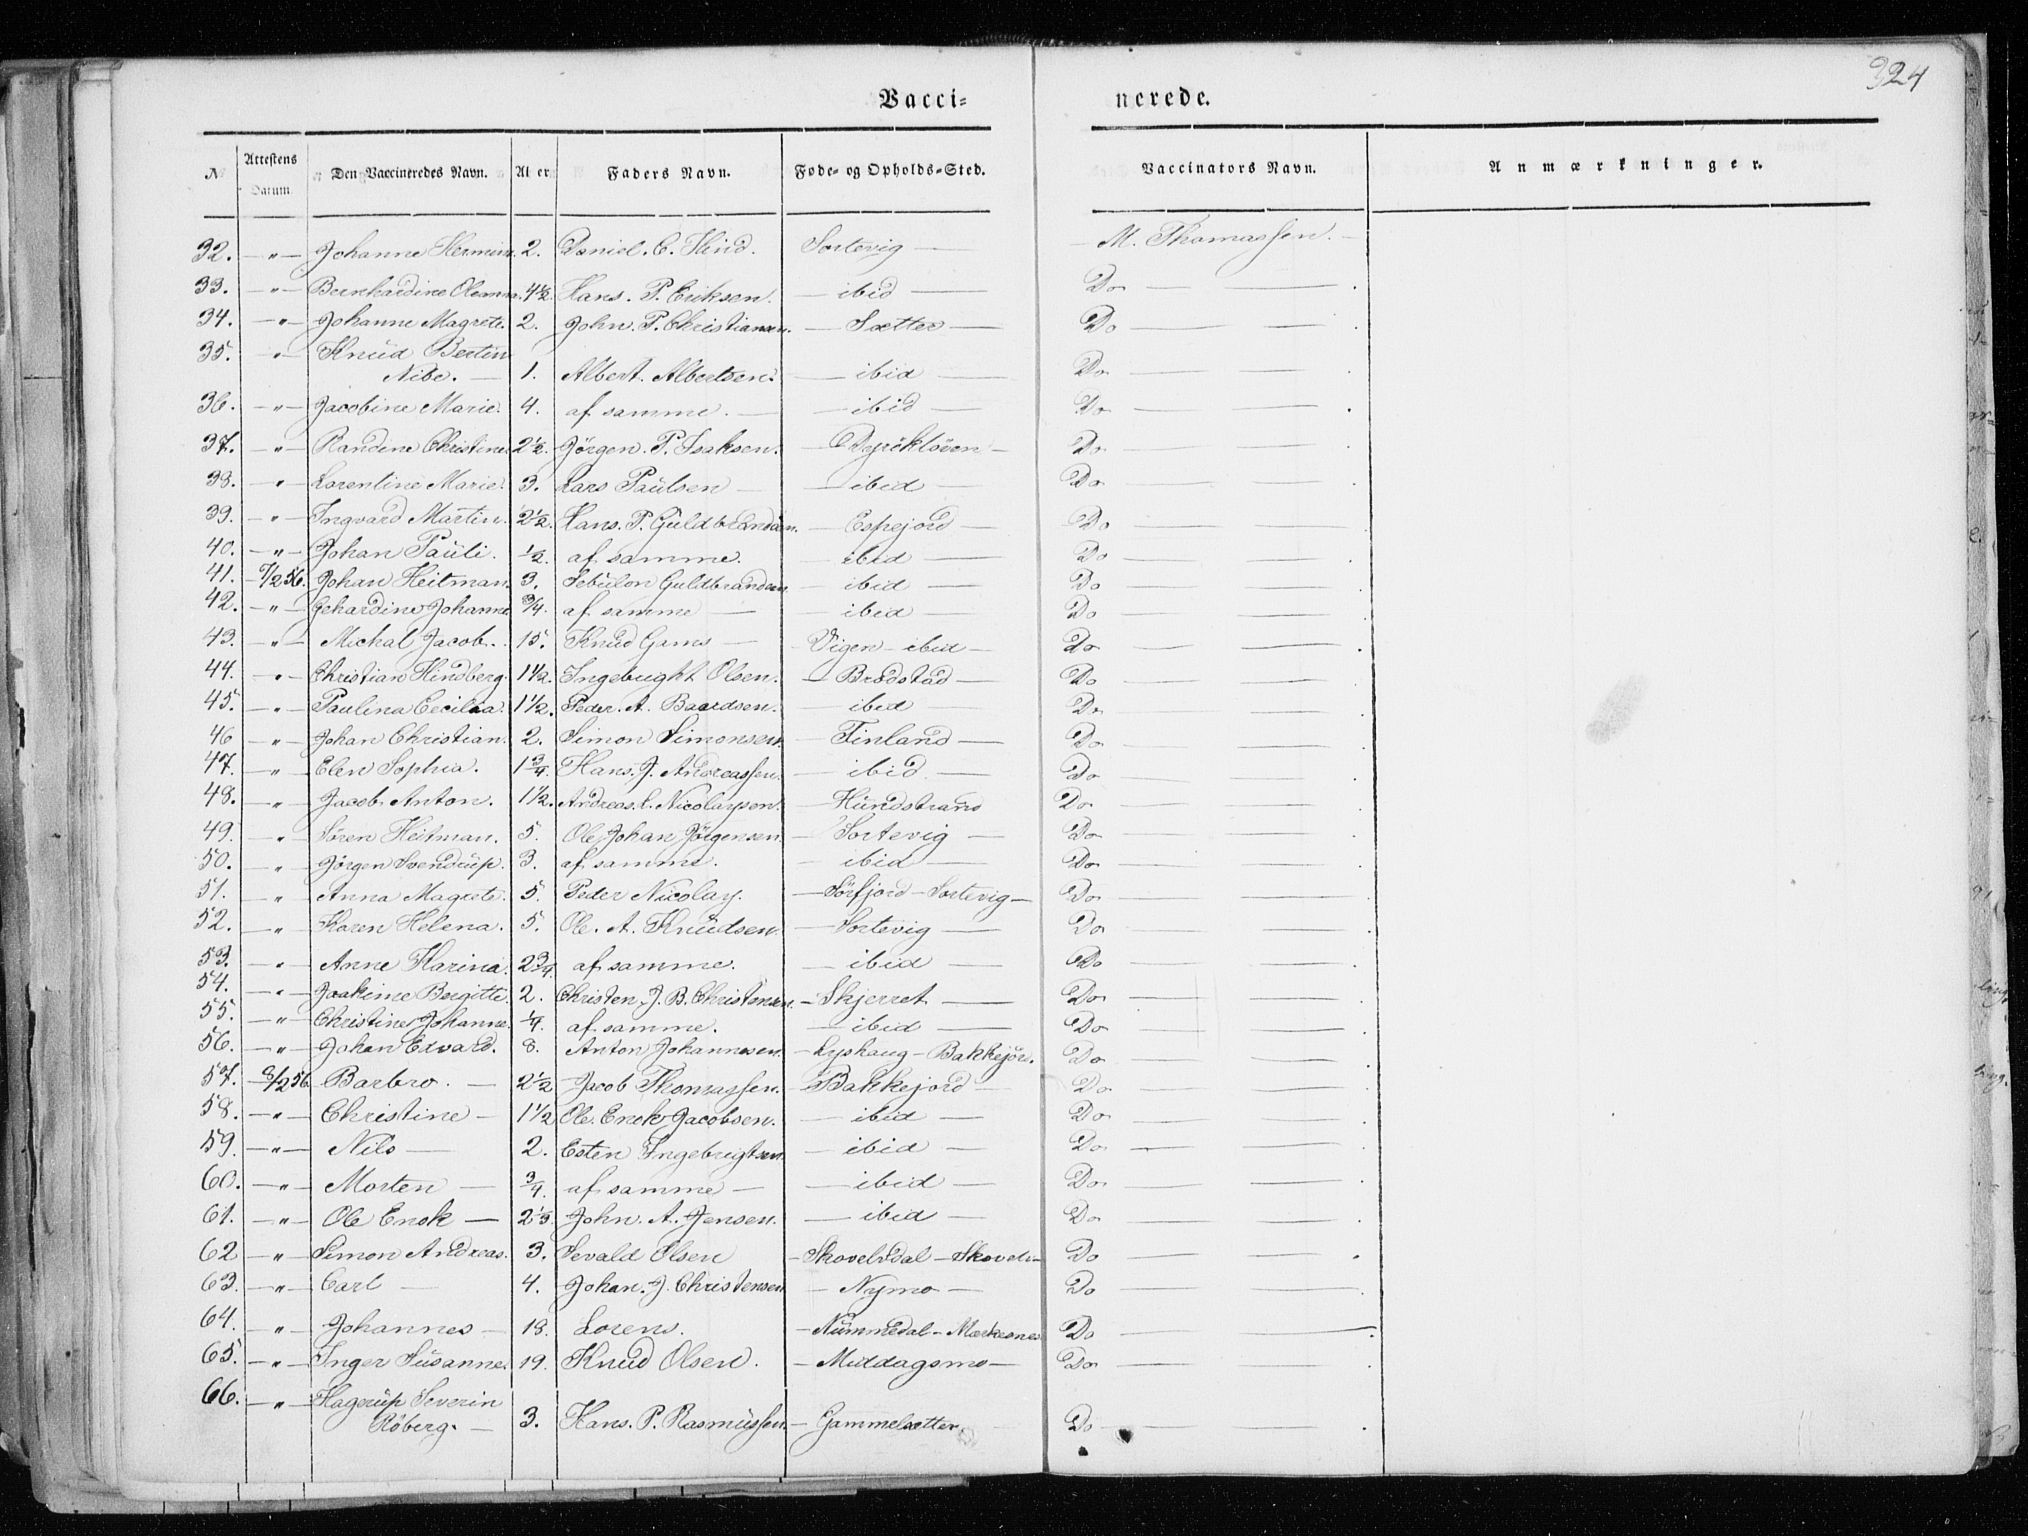 324
Vacci= nerede.
N Attestens Datum. Den Vaccineredes Navn. Alder Faders Navn. Føde- og Opholds-Sted. Vaccinators Navn. Anmærkninger.
32. —"— Johanne Hermine. 2. Daniel. C. Hind. Sortevig — M. Thomassen. —
33. —"— Bernhardine Olemn. 4½ Hans. P. Eriksen. — ibid — Do — — .
34. —"— Johanne Magrete. 2. John. P. Christiansen. — Sætter — Do — — .
35. —"— Knud Bertin
Nibe. — 1. Albert. Albertsen. — ibid — Do — — .
36. —"— Jacobine Marie. 4. af samme. — — ibid — Do — — .
37. —"— Randine Christine. 2½. Jörgen. P. Isaksen. — — Do — — .
38. —"— Lorentine Marie. 3. Lars Paulsen — — ibid — Do — — .
39. —"— Ingvard Martin. 2½. Hans. P. Guldbrandsen. — Espejord — Do — — .
40. —"— Johan Pauli. ½. af samme. — ibid — Do — — .
41. 7/2 56. Johan Heitman. 3. Sebulon Guldbrandsen ibid — Do — — .
42. —"— Gehardine Johanne ¾. af samme — ibid — Do — — .
43. —"— Michal Jacob. 15. Knud Gams — Vigen — ibid — Do — — .
44. —"— Christian Hindberg. 1½. Ingebright Olsen. — Brodstad — Do — — .
45. —"— Paulina Cecilia. 1½. Peder. A. Baardsen. — ibid Do — .
46 —"— Johan Christian. 2. Simon Simonsen. — Finland — Do — — .
47. —"— Elen Sophia. 1¾. Hans. J. Andreassen. — ibid. — Do — — .
48. —"— Jacob Anton. 1½. Andreas. L. Nicolaysen. — Hundstrand Do — — .
49. " Søren Heitman. 5. Ole Johan Jörgensen — Sortevig — Do — — .
50. " Jörgen Svendrup. 3. af samme. — ibid — Do — — .
51. " Anna Magrete. 5. Peder Nicolay. — Sörfjord — Sortevig — Do — — .
52. —"— Karen Helena. 5. Ole. A. Knudsen. — Sortevig — Do — — .
53. —"— Anne Karina. 2¾. af samme. — ibid — Do — — .
54. —"— Joakime Bergitte. 2. Christen. J. B. Christensen. — Skjerret — Do — — .
55. —"— Christine Johanne. ¼. af samme. — ibid — Do — — .
56. —"— Johan Edvard. 8. Anton Johannesen. — Lyshaug — Bakkejörd. Do — — .
57. 8/2 56 Barbro. — 2½ Jacob Thomassen. — Bakkejord — Do — — .
58. —"— Christine — 1½ Ole. Enok Jacobsen. — ibid — Do — — .
59. —"— Nils — 2. Esten Ingebrigtsen. — ibid — Do — — .
60. —"— Morten — ¾. af samme — — ibid — Do — — .
61. —"— Ole Enok — 2⅓. John. A. Jensen. — ibid — Do — — .
62 —"— Simon Andreas. 3. Sevald Olsen — Skovelvdal — Do — .
63. —"— Carl — 4. Johan. J. Christensen — Nymo — Do — — .
64. —"— Johannes — 18. Lorens. — Nummedal — Do — — .
65. —"— Inger Susanne. 19. Knud Olsen. — Middagsmo — Do — — .
66. —"— Hagerup Severin
Röberg. — 3. Hans. P. Rasmussen — Gammelsætter. Do — — .